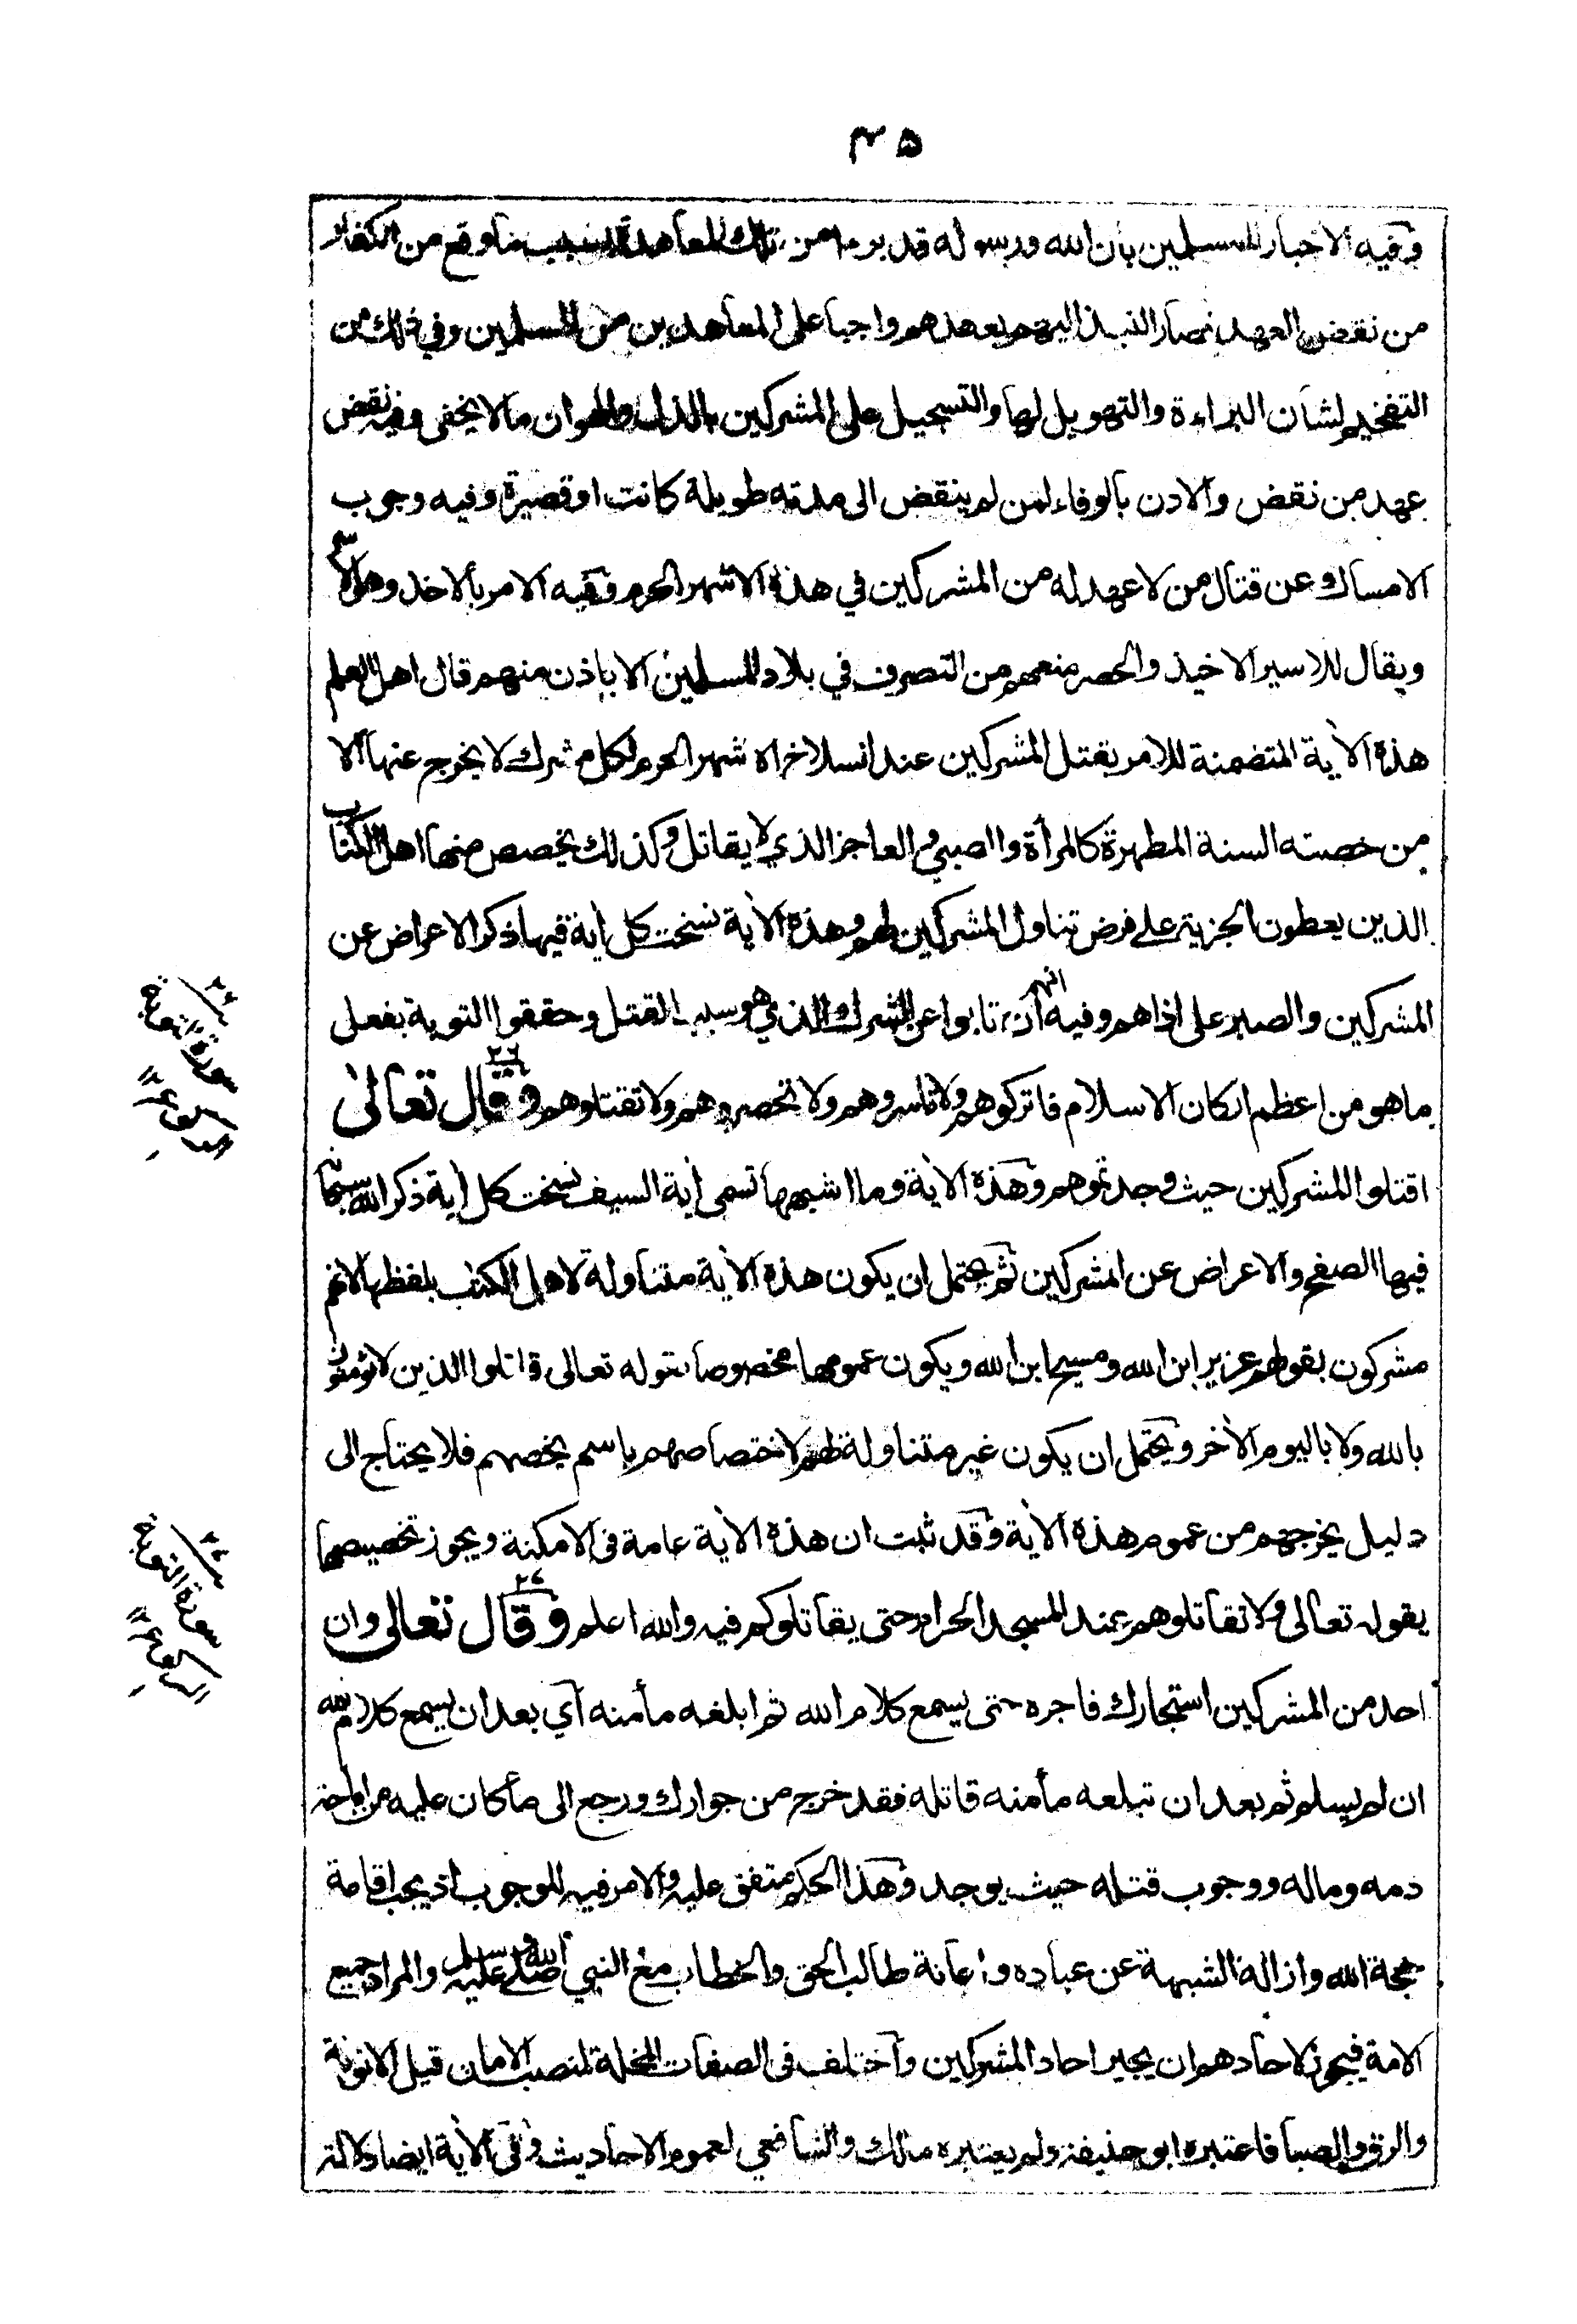 ٤٥
وفيه الاخبار للمسلمين بأن الله ورسوله قد برءا من تلك المعاهدة بسبب ما وقع من الكفار
من نقض العهد فصار النبذ اليهم بعهدهم واجبا على المعاهدين من المسلمين وفي ذلك من
التفخيم لشان البراءة والتهويل لها والتسجيل على المشركين بالذل والهوان ما لا يخفى وفيه نقض
عهد من نقض والاذن بالوفاء لمن لم ينقض الى مدته طويلة كانت او قصيرة وفيه وجوب
الامساك عن قتال من لا عهد له من المشركين في هذه الاشهر الحرم وفيه الامر بالاخذ وهو الاسر
ويقال للاسير الاخيذ والحصر منعهم من التصرف في بلاد المسلمين الا باذن منهم قال اهل العلم
هذه الآية المتضمنة للامر بقتل المشركين عند انسلاخ الاشهر الحرم لكل مشرك لا يخرج عنها الا
من خصته السنة المطهرة كالمرأة والصبي والعاجز الذي لا يقاتل وكذلك يخصص منها اهل الكتاب
الذين يعطون الجزية على فرض تناول المشركين لهم وهذه الآية نسخت كل أية فيها ذكر الاعراض عن
المشركين والصبر على اذاهم وفيه انهم ان تابوا عن الشرك الذي هو سبب القتل وحققوا التوبة بفعل
ما هو من اعظم اركان الاسلام فاتركوهم ولا تاسروهم ولا تحصروهم ولا تقتلوهم ٢٦ وقال تعالى
اقتلوا المشركين حيث وجدتموهم وهذه الآية وما اشبهها تسمى أية السيف نسخت كل أية ذكر الله سبحانه
فيها الصفح والاعراض عن المشركين ثم يحتمل ان يكون هذه الآية متناولة لاهل الكتب بلفظها لانهم
مشركون بقولهم عزير ابن الله ومسيح ابن الله ويكون عمومها مخصوصا بقوله تعالى قاتلوا الذين لا يؤمنون
بالله ولا باليوم الآخر ويحتمل ان يكون غير متناولة لهم لاختصاصهم باسم يخصهم فلا يحتاج الى
دليل يخرجهم من عموم هذه الآية وقد ثبت ان هذه الآية عامة في الامكنة ويجوز تخصيصها
بقوله تعالى ولا تقاتلوهم عند المسجد الحرام حتى يقاتلوكم فيه والله اعلم ٢٧ وقال تعالى وان
احد من المشركين استجارك فاجره حتى يسمع كلام الله ثم ابلغه مأمنه أي بعد ان يسمع كلام الله
ان لم يسلم ثم بعد ان تبلغه مأمنه قاتله فقد خرج من جوارك ورجع الى ما كان عليه من اباحة
دمه وماله ووجوب قتله حيث يوجد وهذا الحكم متفق عليه والامر فيه للوجوب اذ يجب اقامة
حجة الله وازالة الشبهة عن عباده واعانة طالب الحق والخطاب مع النبي صلى الله عليه وسلم والمراد جميع
الامة فيجوز لاحادهم ان يجير احاد المشركين واختلف في الصفات المخلة لمنصب الامان قيل الانوثة
والرق والصبا فاعتبره ابو حنيفة ولم يعتبره مالك والشافعي لعموم الاحاديث وفي الآية ايضا دلالة
٢٦
سورة التوبة
الركوع ١
٢٧
سورة التوبة
الركوع ١